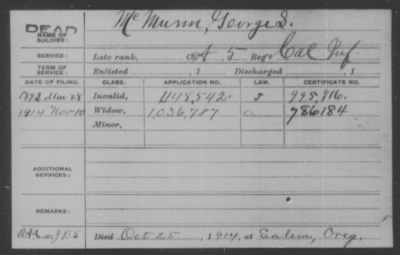 DEAD
NAME OF SOLDIER:
McMunn, George S.
SERVICE:
Late rank, Co. A 5 Reg't Cal Inf.
TERM OF SERVICE:
Enlisted , 1 Discharged , 1
DATE OF FILING. CLASS. APPLICATION NO. LAW. CERTIFICATE NO.
1892 Mar 28 Invalid, 1,118,542
1914 Nov 10 Widow, 1,036,787 786184
Minor,
ADDITIONAL SERVICES:
REMARKS:
Died Oct 25, 1914, at Salem, Oreg.